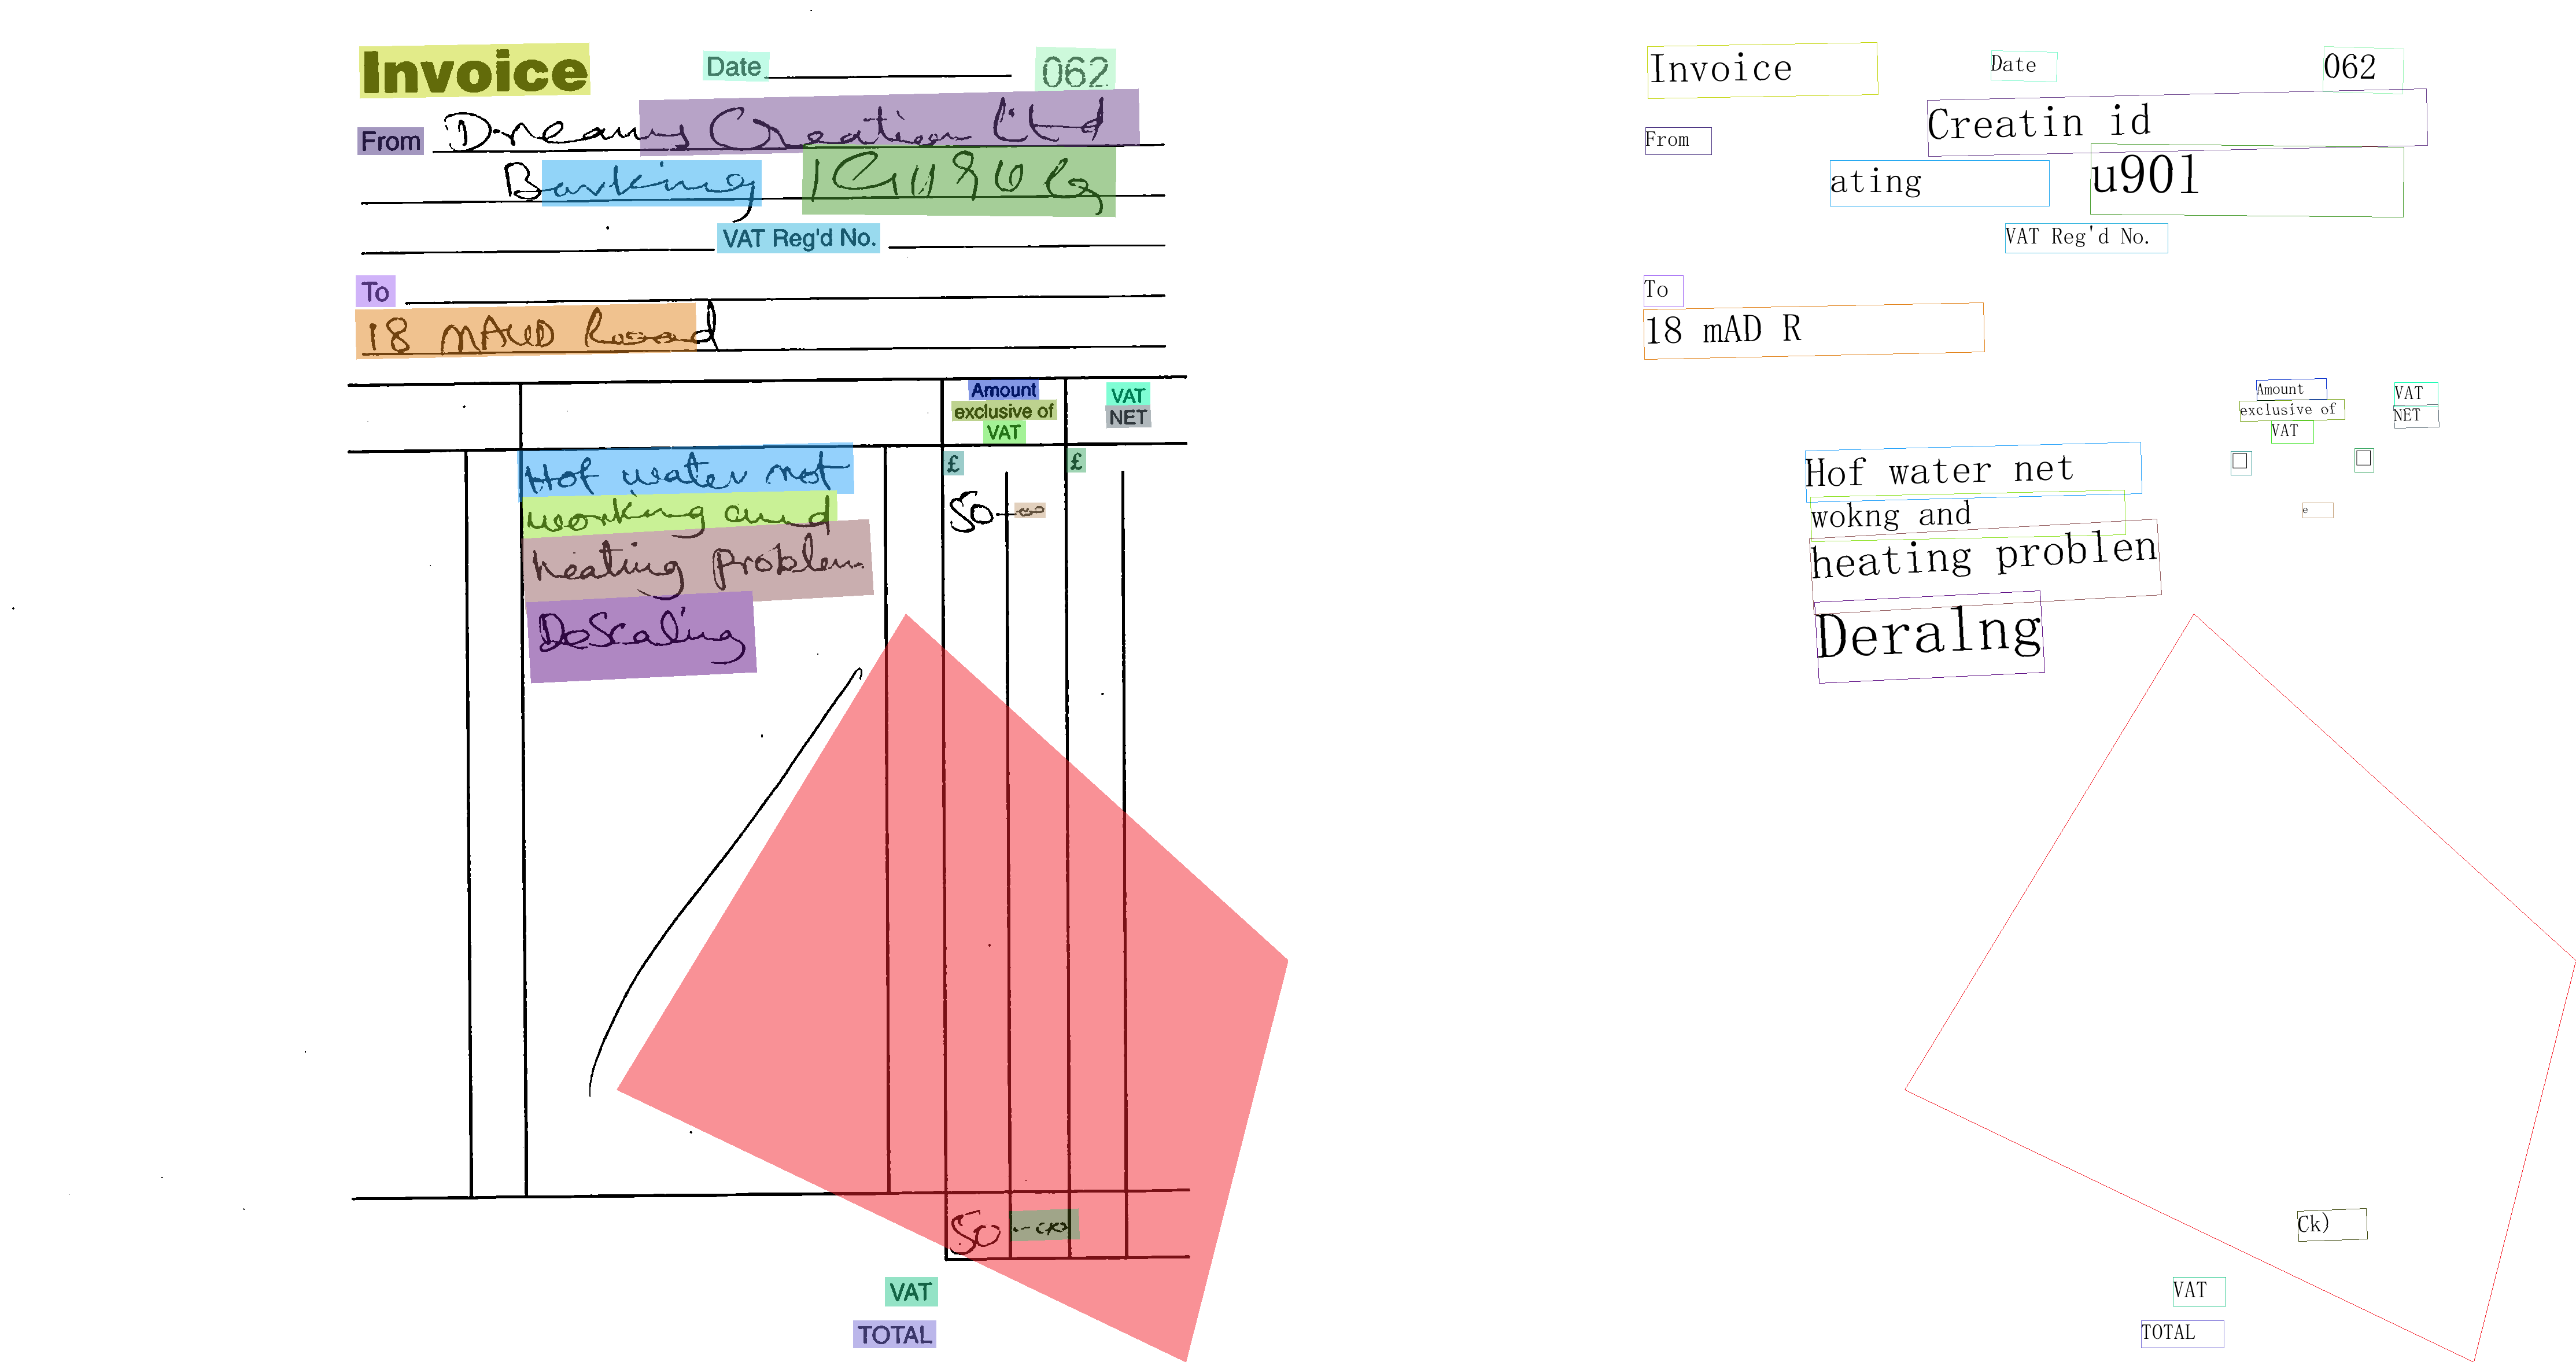 Invoice Date 062
From Dreams Creation Ltd
Barking IG11 8UG
VAT Reg'd No.
To
18 MAUD Road
Amount exclusive of VAT
VAT NET
£ £
Hot water not 50-00
working and
heating problem
DeScaling
50-00
VAT
TOTAL
Invoice Date 062
From Creatin id
ating u90l
VAT Reg'd No.
To
18 mAD R
Amount VAT
exclusive of NET
VAT
Hof water net
wokng and e
heating problen
Deralng
Ck)
VAT
TOTAL